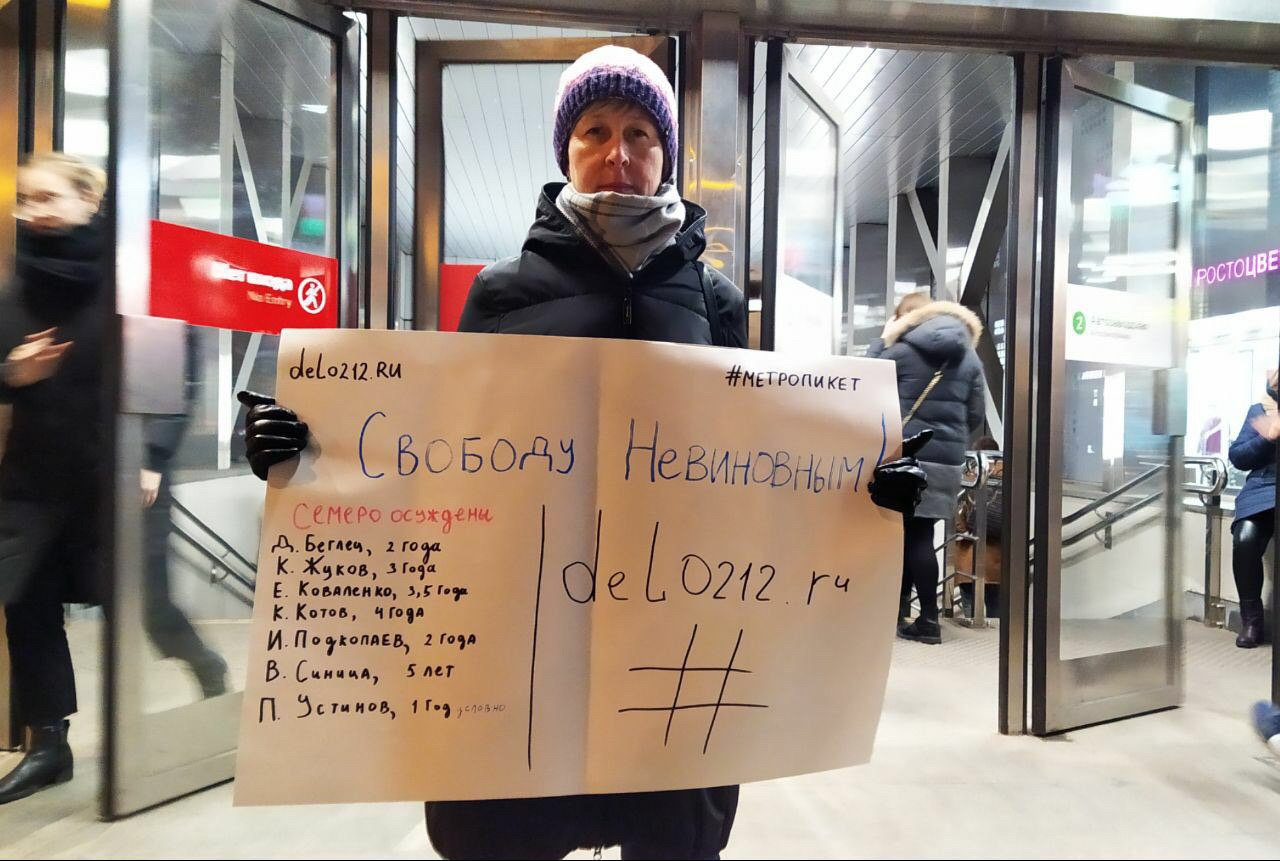 Нет входа
No Entry
РОСТОЦВЕ
2 Автозаводская
deLo212.RU
#МЕТРОПИКЕТ
Свободу Невиновным!
Семеро осуждены
Д. Беглец, 2 года
К. Жуков, 3 года
Е. Коваленко, 3,5 года
К. Котов, 4 года
И. Подкопаев, 2 года
В. Синица, 5 лет
П. Устинов, 1 год условно
deLo212.ru
#